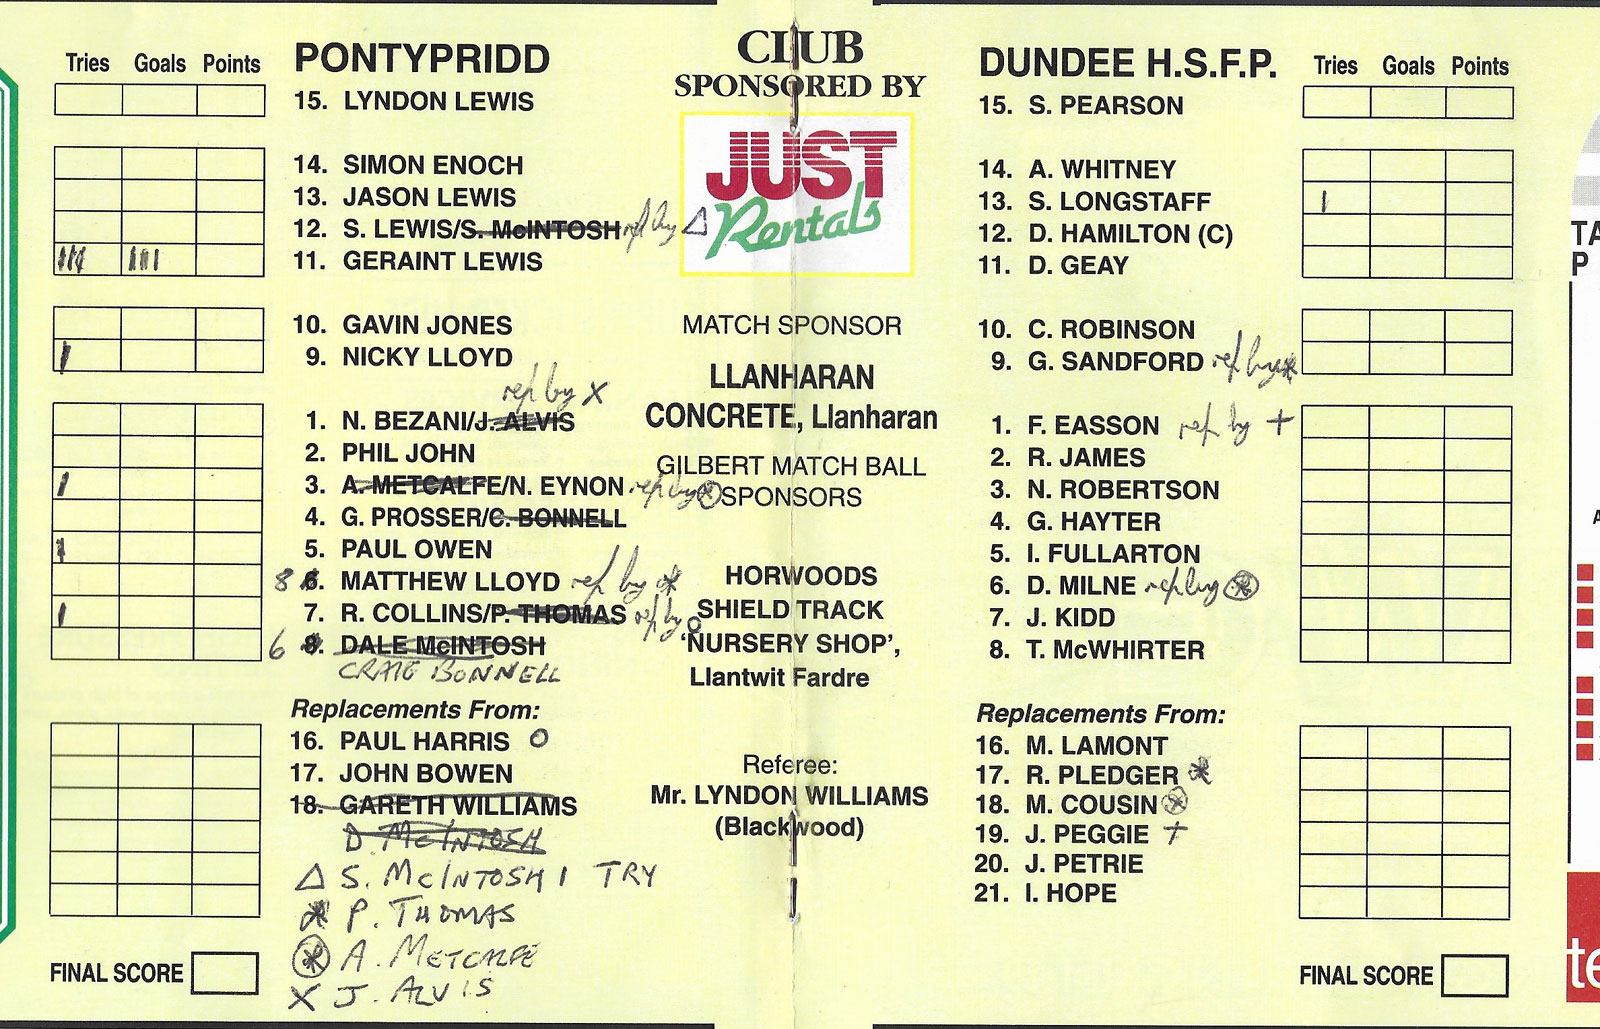 Tries Goals Points
PONTYPRIDD
15. LYNDON LEWIS
14. SIMON ENOCH
13. JASON LEWIS
12. S. LEWIS/S. McINTOSH rep by △
11. GERAINT LEWIS
10. GAVIN JONES
9. NICKY LLOYD
rep by X
1. N. BEZANI/J. ALVIS
2. PHIL JOHN
3. A. METCALFE/N. EYNON rep by ⊛
4. G. PROSSER/C. BONNELL
5. PAUL OWEN
8 6. MATTHEW LLOYD rep by *
7. R. COLLINS/P. THOMAS rep by O
6 8. DALE McINTOSH
CRAIG BONNELL
Replacements From:
16. PAUL HARRIS O
17. JOHN BOWEN
18. GARETH WILLIAMS
D. McINTOSH
△ S. McINTOSH 1 TRY
* P. THOMAS
⊛ A. METCALFE
X J. ALVIS
FINAL SCORE
CLUB
SPONSORED BY
JUST
Rentals
MATCH SPONSOR
LLANHARAN
CONCRETE, Llanharan
GILBERT MATCH BALL
SPONSORS
HORWOODS
SHIELD TRACK
'NURSERY SHOP',
Llantwit Fardre
Referee:
Mr. LYNDON WILLIAMS
(Blackwood)
DUNDEE H.S.F.P.
Tries Goals Points
15. S. PEARSON
14. A. WHITNEY
13. S. LONGSTAFF
12. D. HAMILTON (C)
11. D. GEAY
10. C. ROBINSON
9. G. SANDFORD rep by *
1. F. EASSON rep by +
2. R. JAMES
3. N. ROBERTSON
4. G. HAYTER
5. I. FULLARTON
6. D. MILNE rep by ⊛
7. J. KIDD
8. T. McWHIRTER
Replacements From:
16. M. LAMONT
17. R. PLEDGER *
18. M. COUSIN ⊛
19. J. PEGGIE +
20. J. PETRIE
21. I. HOPE
FINAL SCORE
TA
P
te